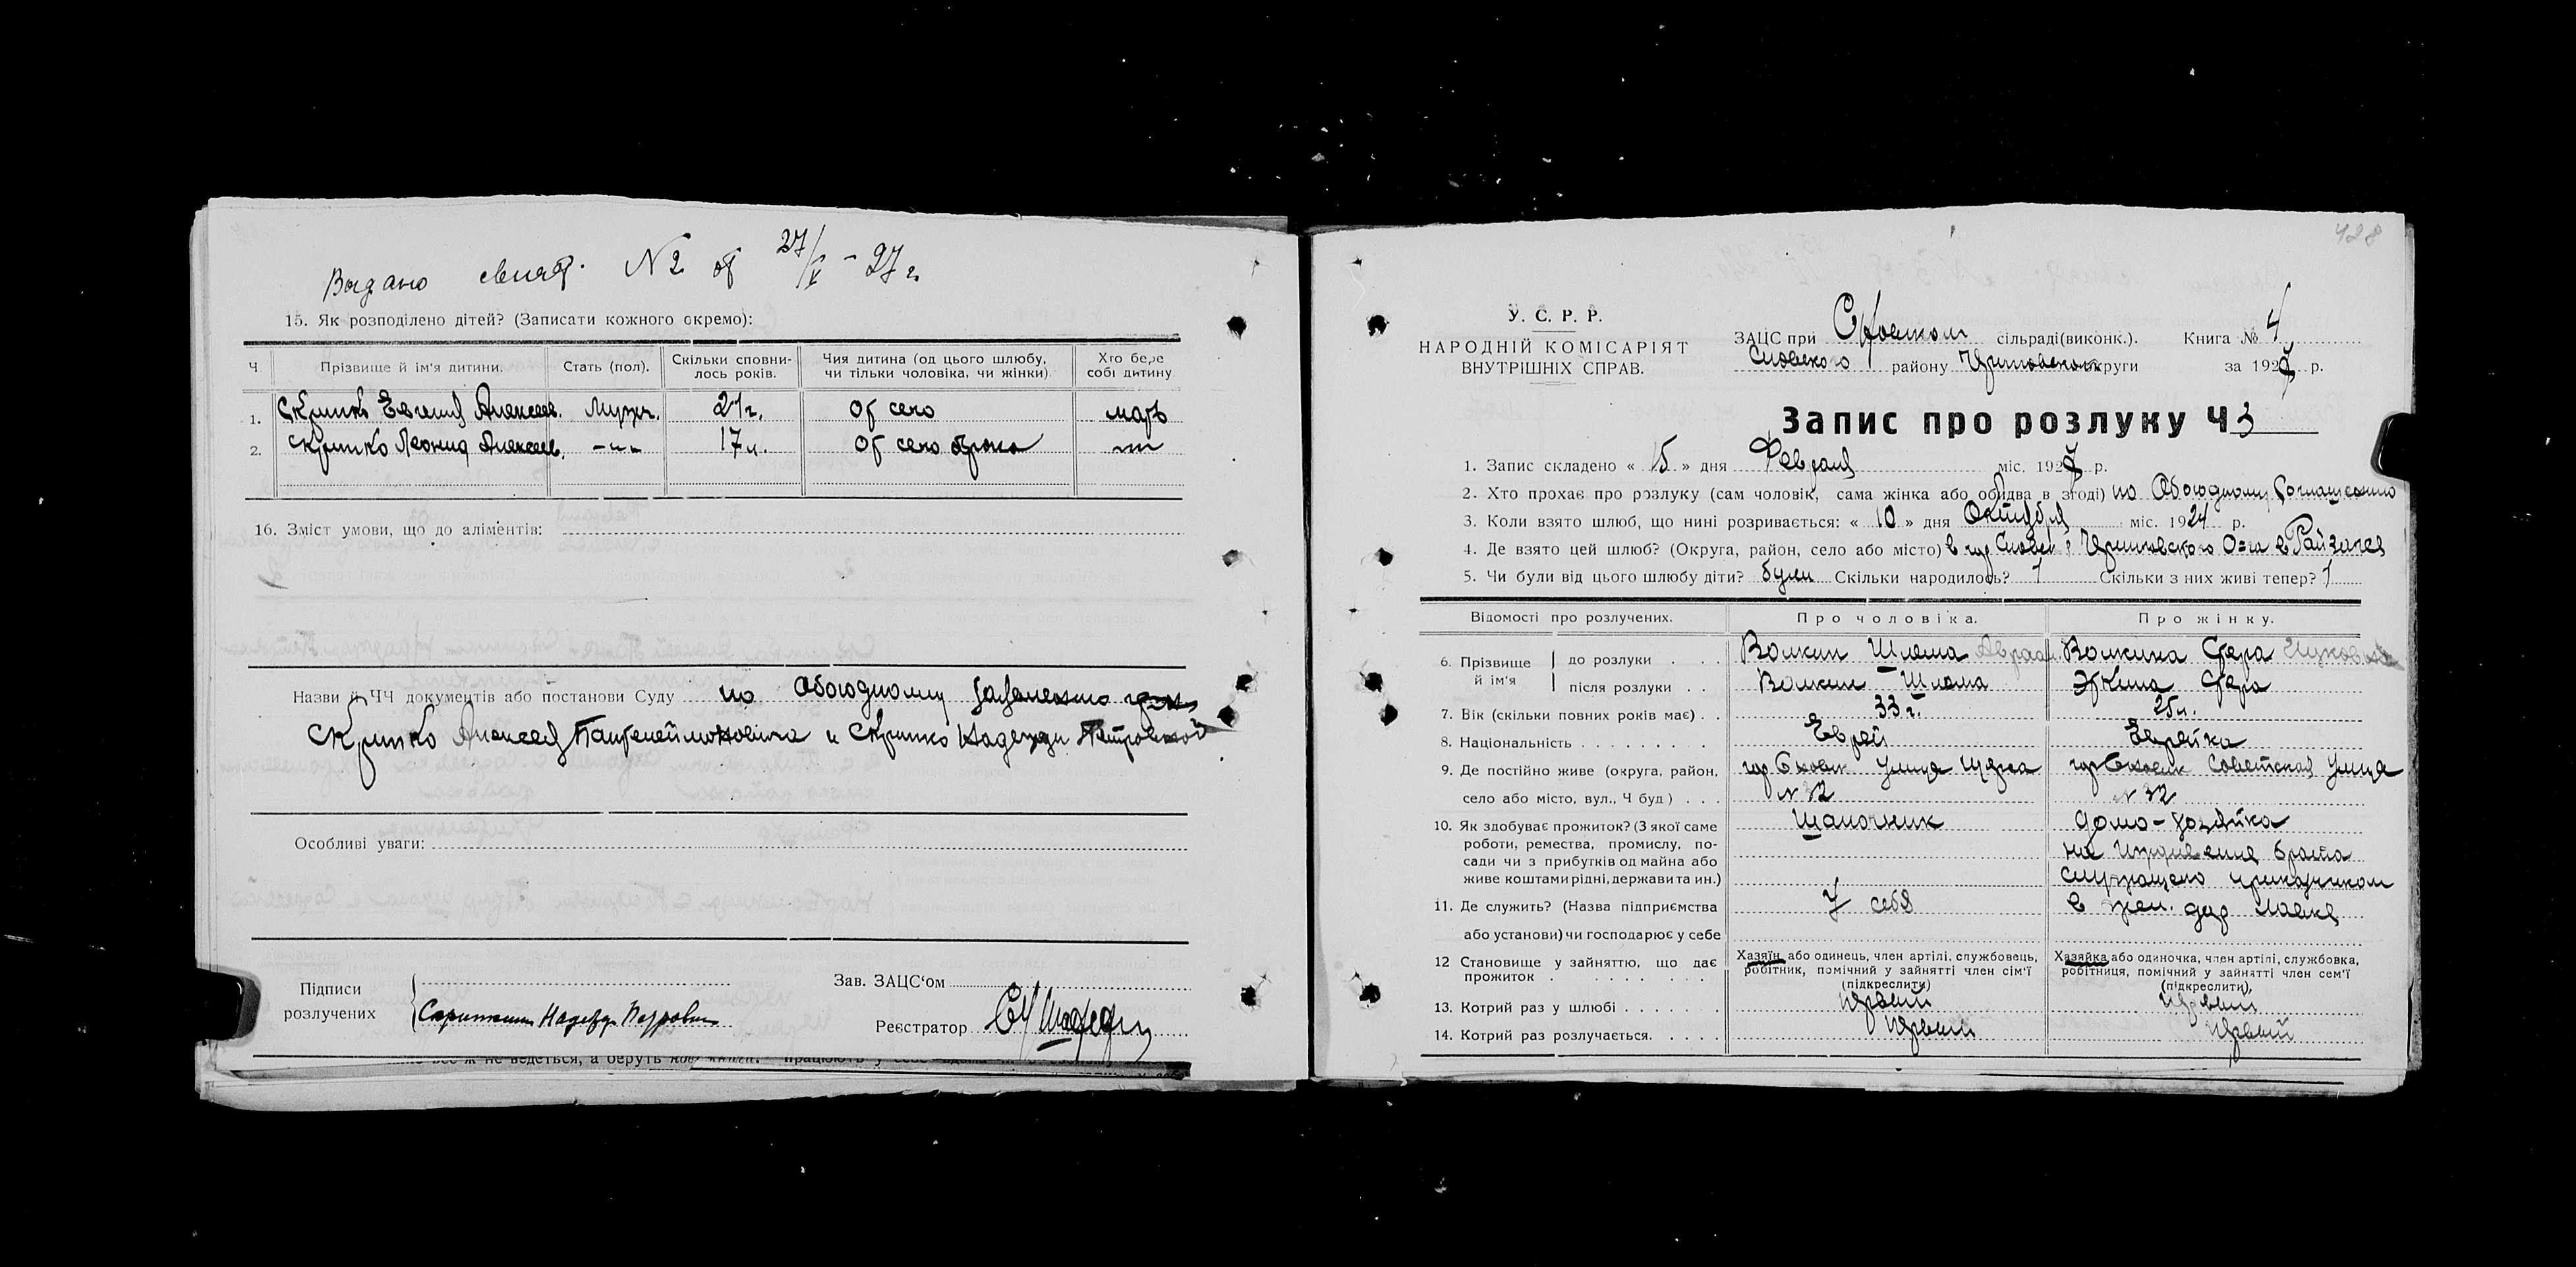 Выдано свид. № 2 от 27/X - 27 г.
15. Як розподілено дітей? (Записати кожного окремо):
Ч Прізвище й ім'я дитини. Стать (пол). Скільки сповнилось років. Чия дитина (од цього шлюбу, чи тільки чоловіка, чи жінки) Хто бере собі дитину
1. Евгений Алексеев. Мужч. 21 г. от сего мать
2. Леонид Алексеев. -"- 17 л. от сего брака -"-
16. Зміст умови, що до аліментів:
Назви й ЧЧ документів або постанови Суду по Обоюдному заявлению
Алексея Пантелеймоновича и Надежды Петровной
Особливі уваги:
Підписи розлучених
Надежда Петровна
Зав. ЗАЦС'ом
Реєстратор
428
У. С. Р. Р.
НАРОДНІЙ КОМІСАРІЯТ
ВНУТРІШНІХ СПРАВ.
ЗАЦС при сільраді(виконк.). Книга № 4
Сновского району округи за 1927 р.
Запис про розлуку Ч 3
1. Запис складено « 15 » дня Февраля міс. 1927 р.
2. Хто прохає про розлуку (сам чоловік, сама жінка або обидва в згоді) по Обоюдному соглашению
3. Коли взято шлюб, що нині розривається: « 10 » дня Октября міс. 1924 р.
4. Де взято цей шлюб? (Округа, район, село або місто) в гор
5. Чи були від цього шлюбу діти? были Скільки народилось? 1 Скільки з них живі тепер? 1
Відомості про розлучених. Про чоловіка. Про жінку.
6. Прізвище й ім'я до розлуки . . . Волкин Шлема Волкина Сфера
після розлуки . . Волкин Шлема Эткина Сфера
7. Вік (скільки повних років має) . . 33 г. 25 л.
8. Національність . . . . . . . . Еврей Еврейка
9. Де постійно живе (округа, район, гор Сновск улица гор Сновск Советская улица
село або місто, вул., Ч буд ) . . . № 32 № 32
10. Як здобуває прожиток? (З якої саме Шапочник домо-хозяйка
роботи, ремества, промислу, по- на иждивении брата
сади чи з прибутків од майна або служащего приказчиком
живе коштами рідні, держави та ин.)
11. Де служить? (Назва підприємства У себя
або установи) чи господарює у себе
12 Становище у зайняттю, що дає прожиток . Хазяїн або одинець, член артілі, службовець, робітник, помічний у зайнятті член сім'ї (підкреслити) Хазяйка або одиночка, член артілі, службовка, робітниця, помічний у зайнятті член сем'ї (підкреслити)
13. Котрий раз у шлюбі . . . . . . первый первый
14. Котрий раз розлучається. . . . . первый первый